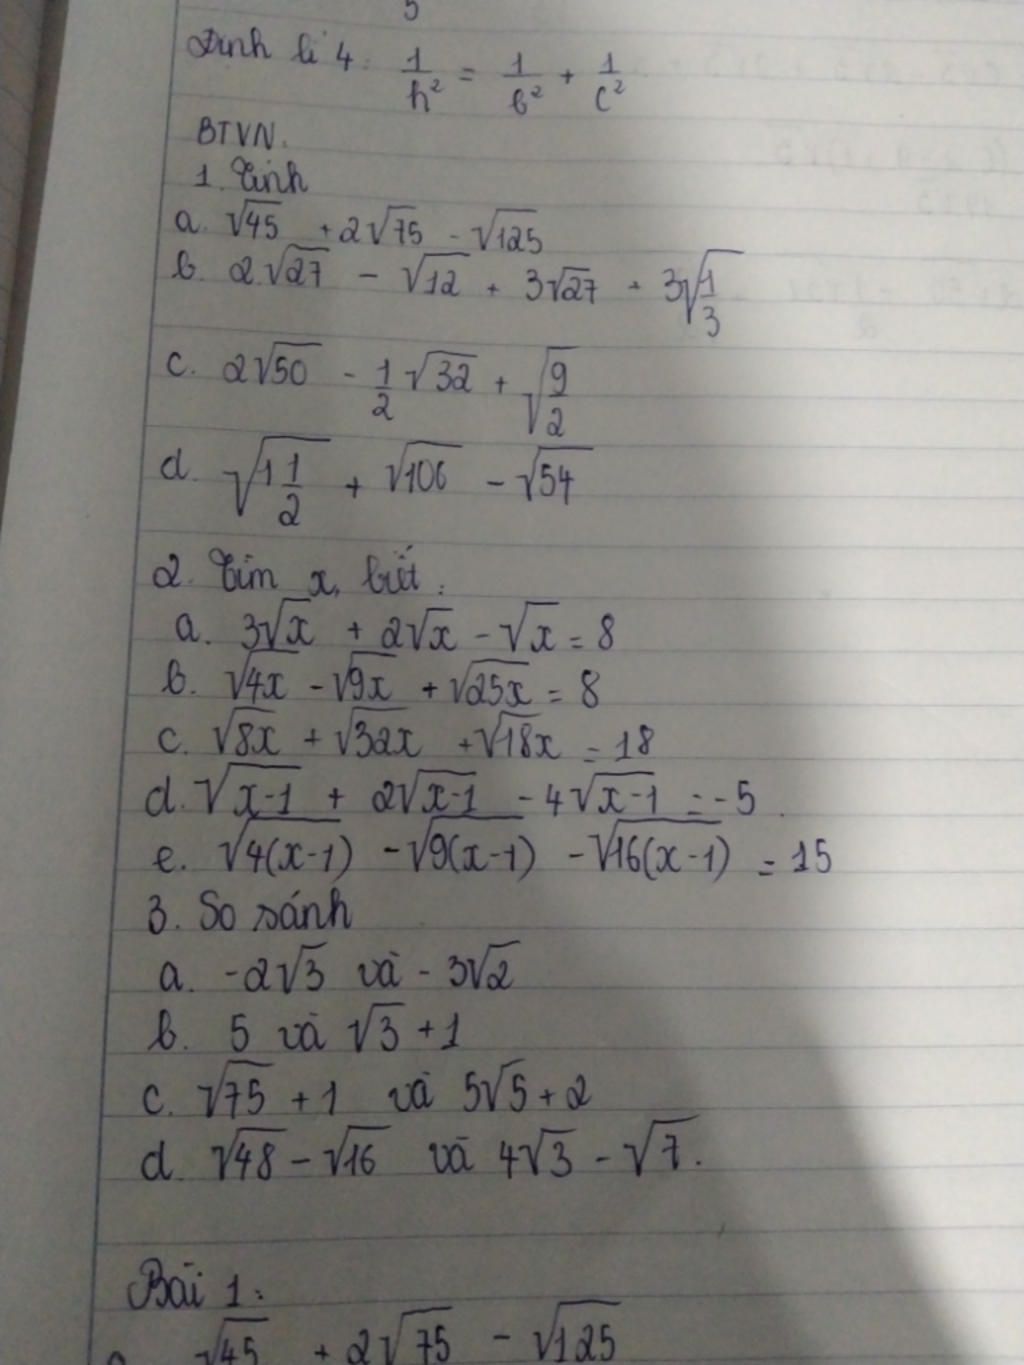 5
Định lí 4: 1/h² = 1/b² + 1/c²
BTVN.
1. Tính
a. √45 + 2√75 - √125
b. 2.√27 - √12 + 3√27 + 3√(1/3)
c. 2√50 - 1/2 √32 + √(9/2)
d. √(1 1/2) + √106 - √54
2. Tìm x, biết:
a. 3√x + 2√x - √x = 8
b. √4x - √9x + √25x = 8
c. √8x + √32x + √18x = 18
d. √(x-1) + 2√(x-1) - 4√(x-1) = -5
e. √4(x-1) - √9(x-1) - √16(x-1) = 15
3. So sánh
a. -2√3 và -3√2
b. 5 và √3 + 1
c. √75 + 1 và 5√5 + 2
d. √48 - √16 và 4√3 - √7.
Bài 1:
a. √45 + 2√75 - √125